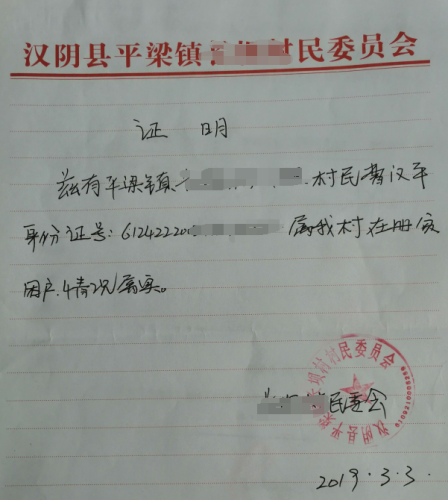 汉阴县平梁镇 村民委员会
证 明
兹有平梁镇 村民 汉平
身份证号:612422200 属我村在册贫
困户.情况属实。
民委会
村民委员会
汉阴县平梁
2019.3.3.